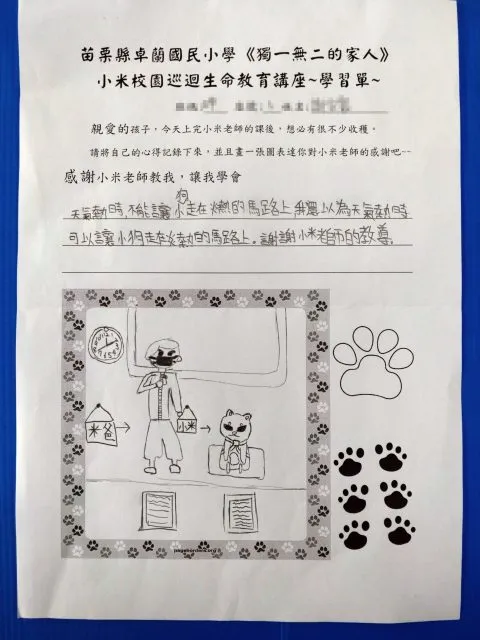 苗栗縣卓蘭國民小學《獨一無二的家人》
小米校園巡迴生命教育講座~學習單~
親愛的孩子，今天上完小米老師的課後，想必有很不少收穫。
請將自己的心得記錄下來，並且畫一張圖表達你對小米老師的感謝吧--
感謝小米老師教我，讓我學會
天氣熱時，不能讓小狗走在炎熱的馬路上，我還以為天氣熱時
可以讓小狗走在炎熱的馬路上。謝謝小米老師的教導。
米爸
小米
pageborders.org